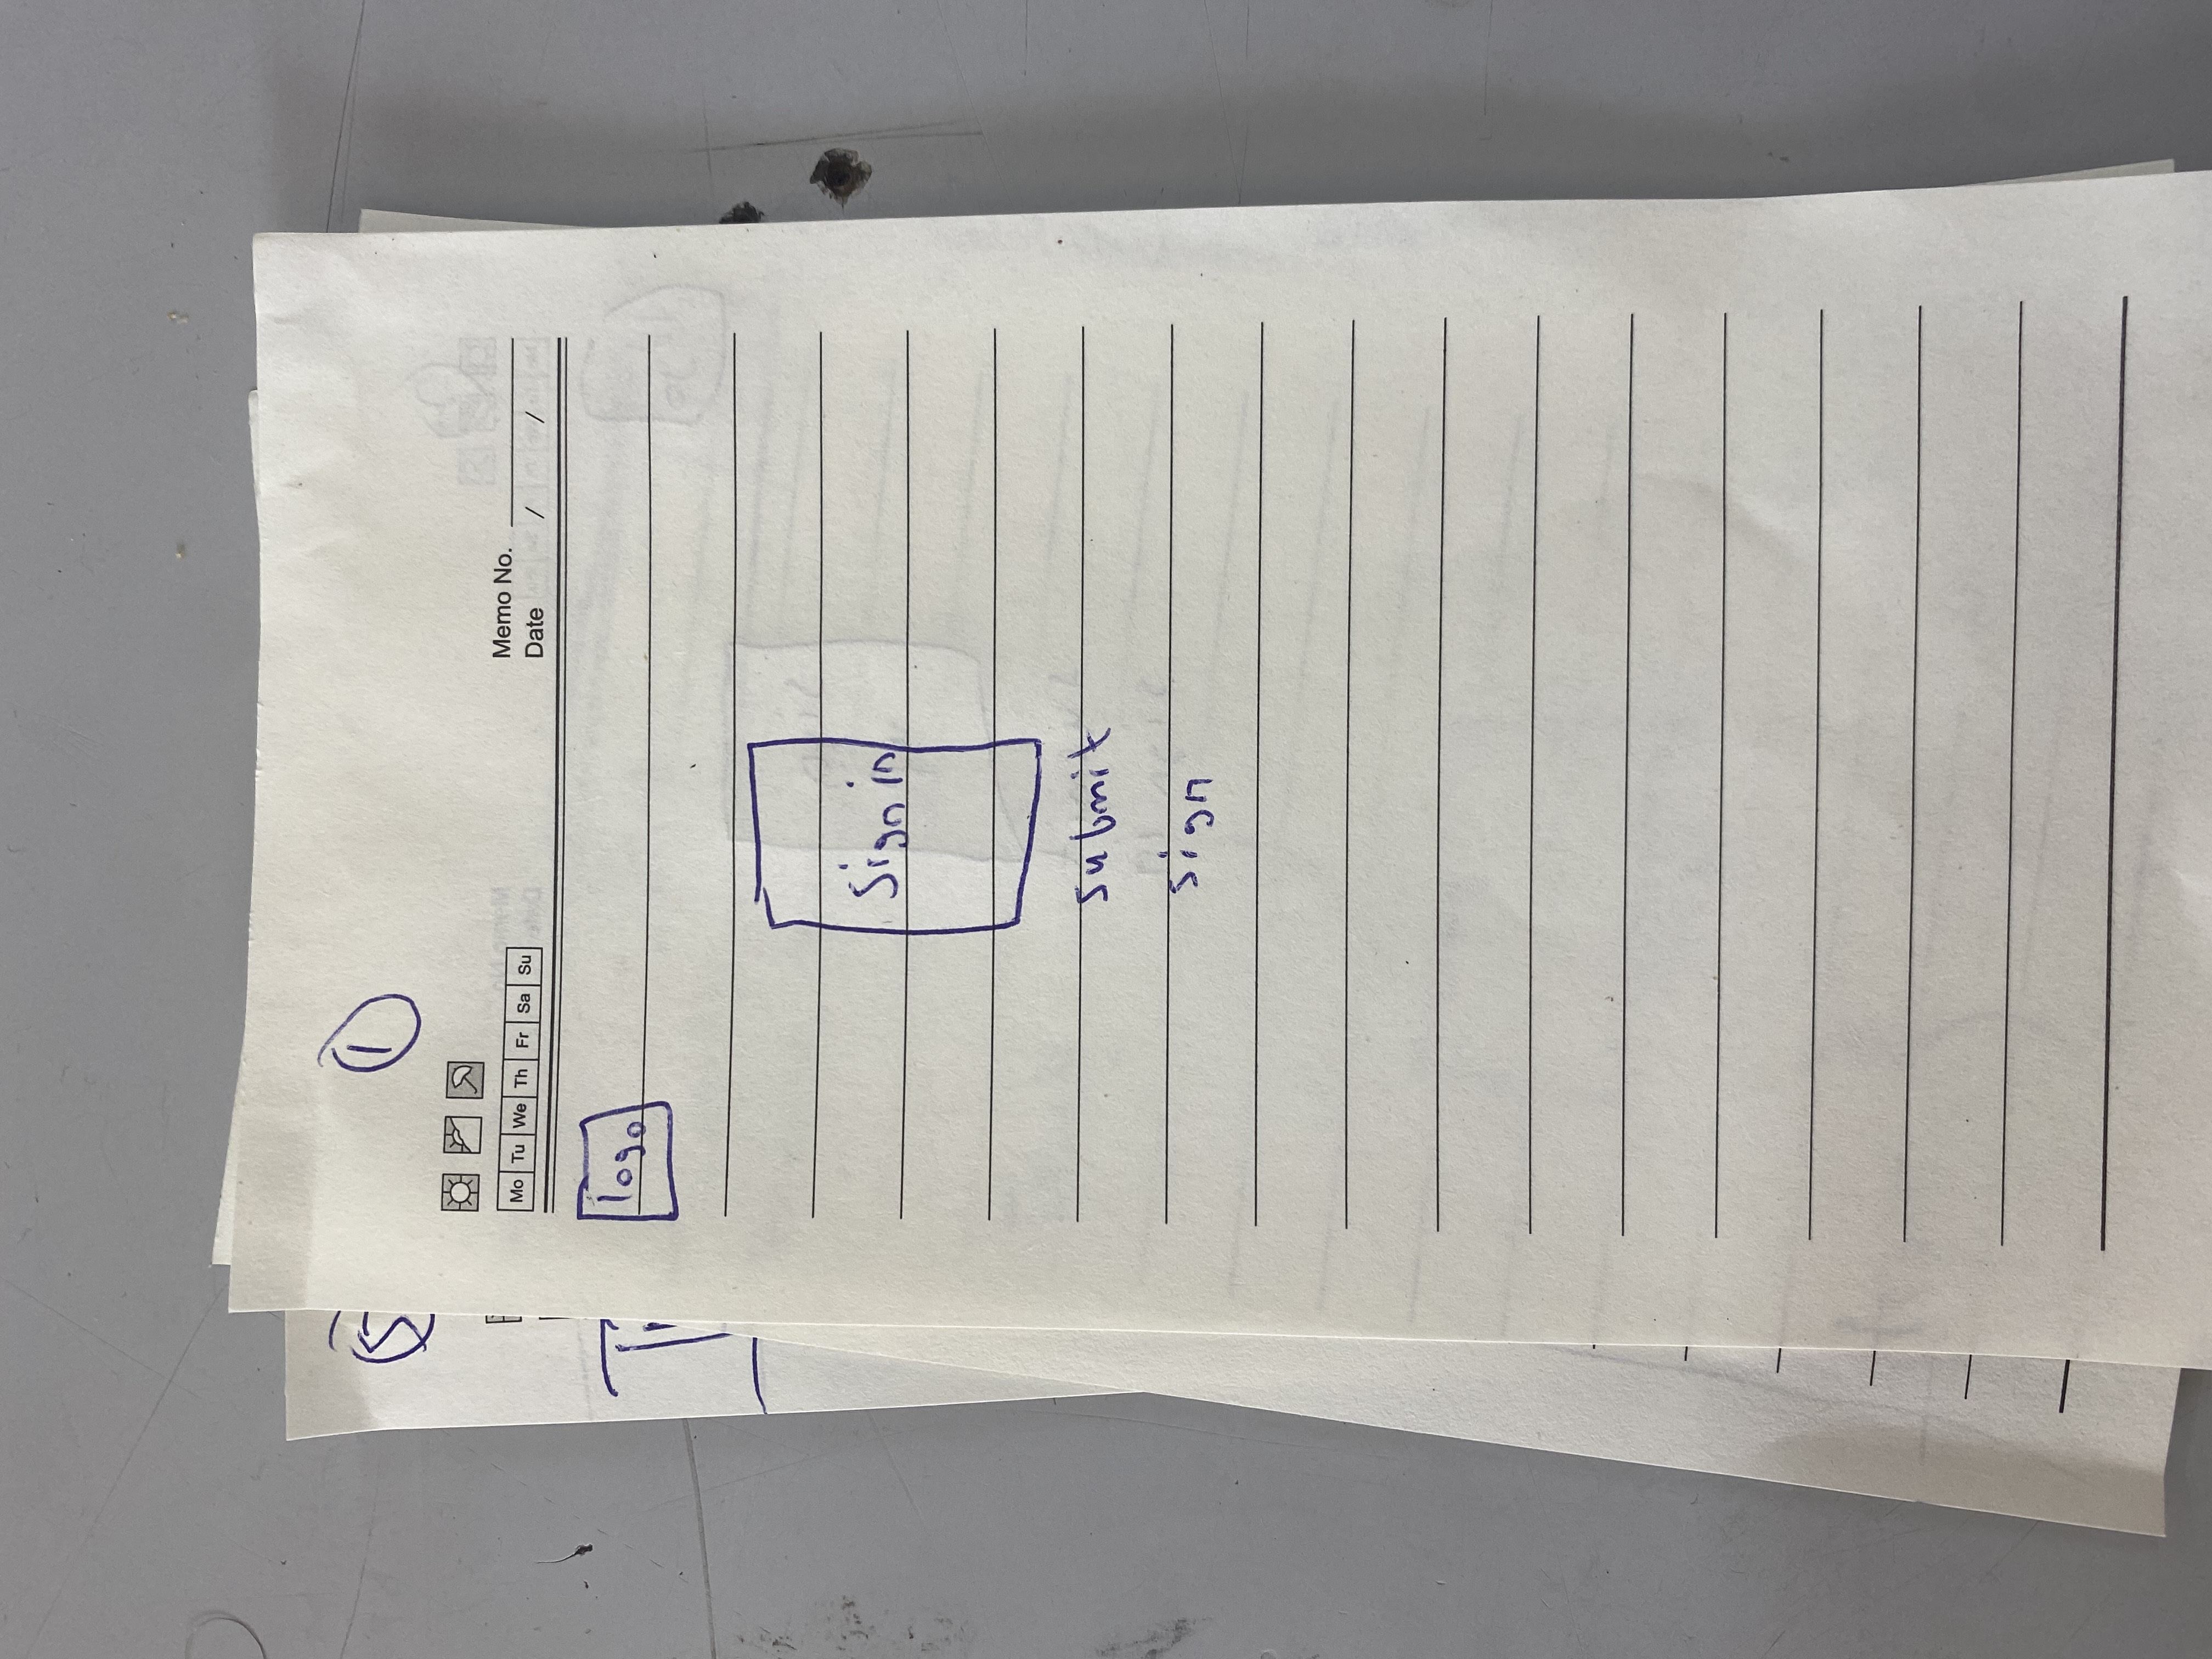 5
1
Mo Tu We Th Fr Sa Su
Memo No.
Date / /
logo
Sign in
submit
sign